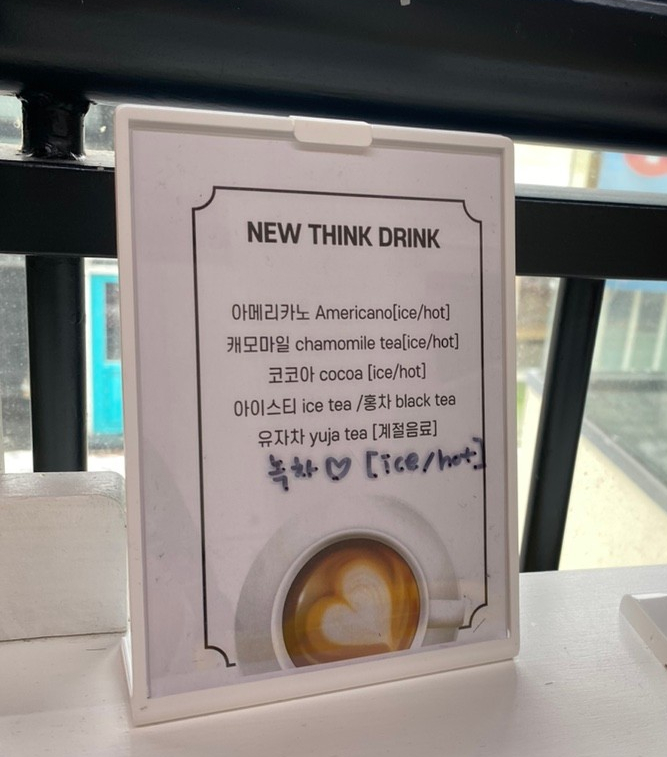 NEW THINK DRINK
아메리카노 Americano[ice/hot]
캐모마일 chamomile tea[ice/hot]
코코아 cocoa [ice/hot]
아이스티 ice tea /홍차 black tea
유자차 yuja tea [계절음료]
녹차 ♡ [ice/hot]